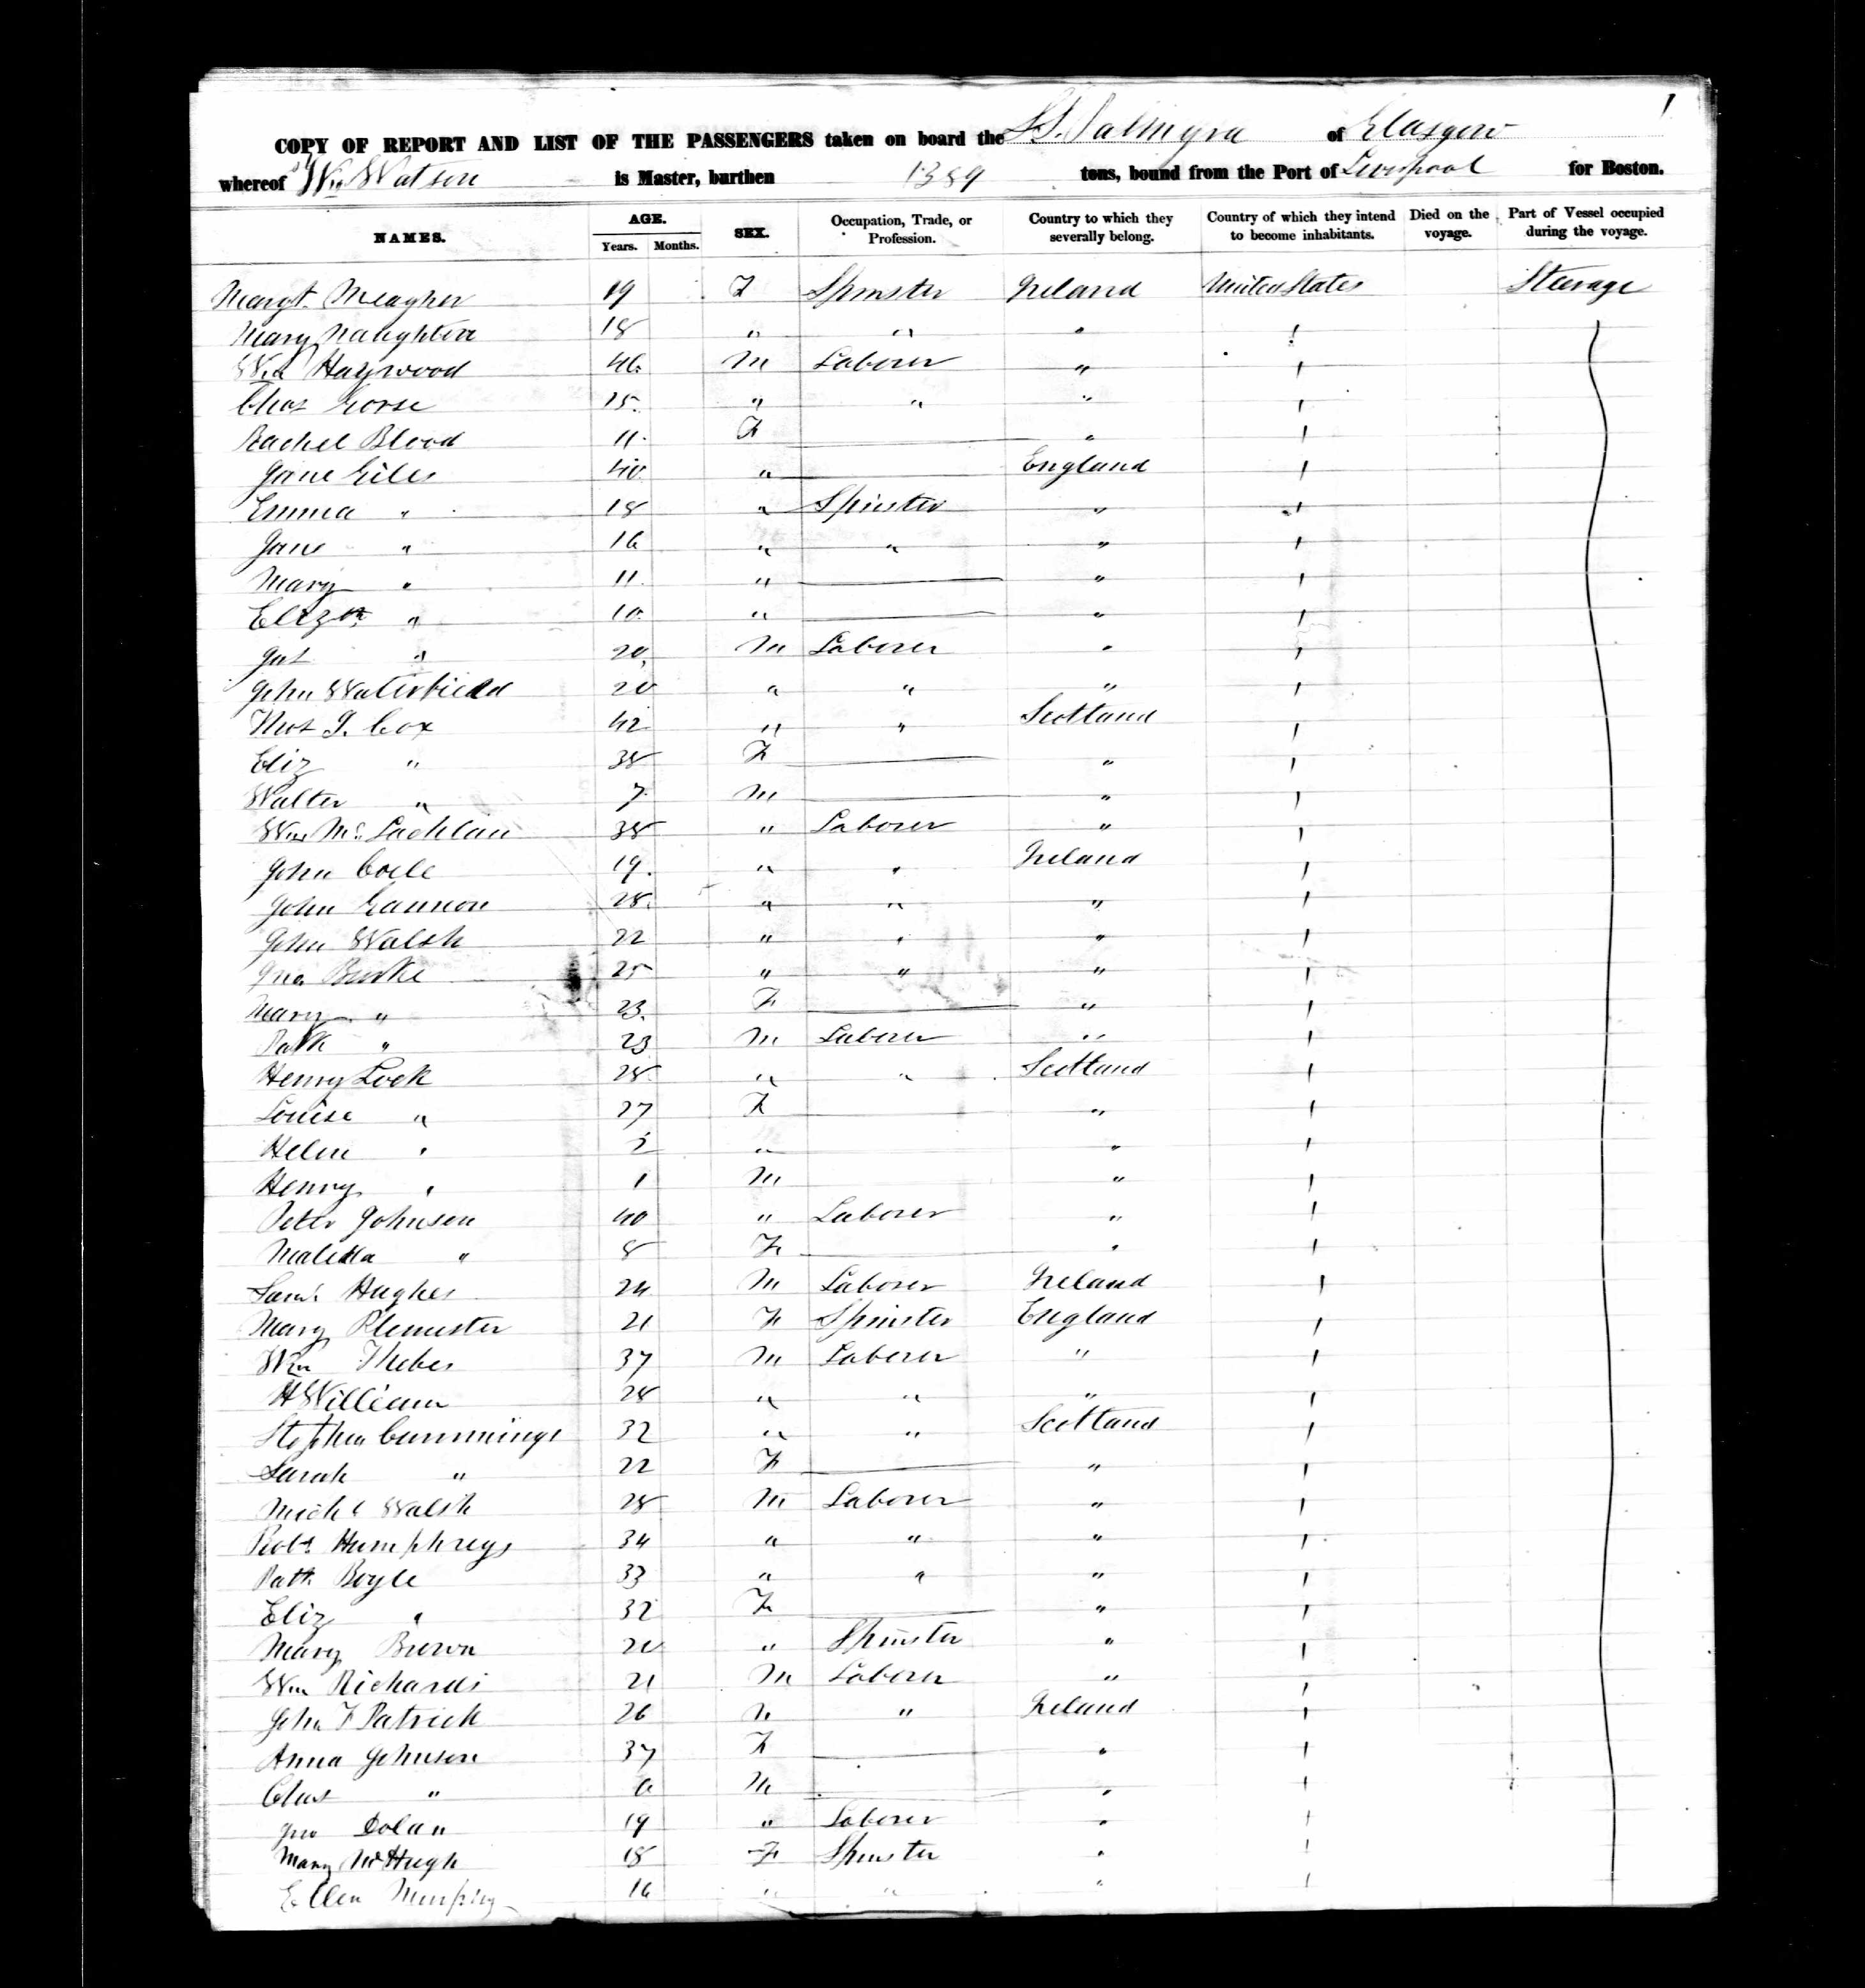 1
COPY OF REPORT AND LIST OF THE PASSENGERS taken on board the SS. Palmyra of Glasgow
whereof Wm Watson is Master, burthen 1389 tons, bound from the Port of Liverpool for Boston.
NAMES. AGE. Years. Months. SEX. Occupation, Trade, or Profession. Country to which they severally belong. Country of which they intend to become inhabitants. Died on the voyage. Part of Vessel occupied during the voyage.
Margt. Meagher 19 F Spinster Ireland United States Steerage
Mary Naughton 18 " " "
Wm Haywood 46 M Laborer "
Chas Gorse 15 " " "
Rachel Blood 11 F "
Jane Giles 40 " England
Emma " 18 " Spinster "
Jane " 16 " " "
Mary " 11 " "
Elizth " 10 " "
" 20 M Laborer "
John Waterfield 20 " " "
Thos J. Cox 42 " " Scotland
Eliz " 38 F "
Walter " 7 M "
Wm McLachlan 38 " Laborer "
John Coile 19 " " Ireland
John Gannon 28 " " "
John Walsh 22 " " "
Jno Burke 25 " " "
Mary " 23 F "
Patk " 23 M Laborer "
Henry Lock 28 " " Scotland
Louise " 27 F "
Helen " 2 " "
Henry " 1 M "
Peter Johnson 40 " Laborer "
" 8 F "
Saml Hughes 24 M Laborer Ireland
Mary 21 F Spinster England
Wm 37 M Laborer "
H William 28 " " "
Stephen Cummings 32 " " Scotland
Sarah " 22 F "
Michl Walsh 28 M Laborer "
Robt Humphreys 34 " " "
Patk Boyle 33 " " "
Eliz " 32 F "
Mary Brown 20 " Spinster "
Wm Richards 21 M Laborer "
John F Patrick 26 M " Ireland
Anna Johnson 37 F "
Chas " M "
Jno Dolan 19 " Laborer "
Mary McHugh 18 F Spinster "
Ellen Murphy 16 " " "